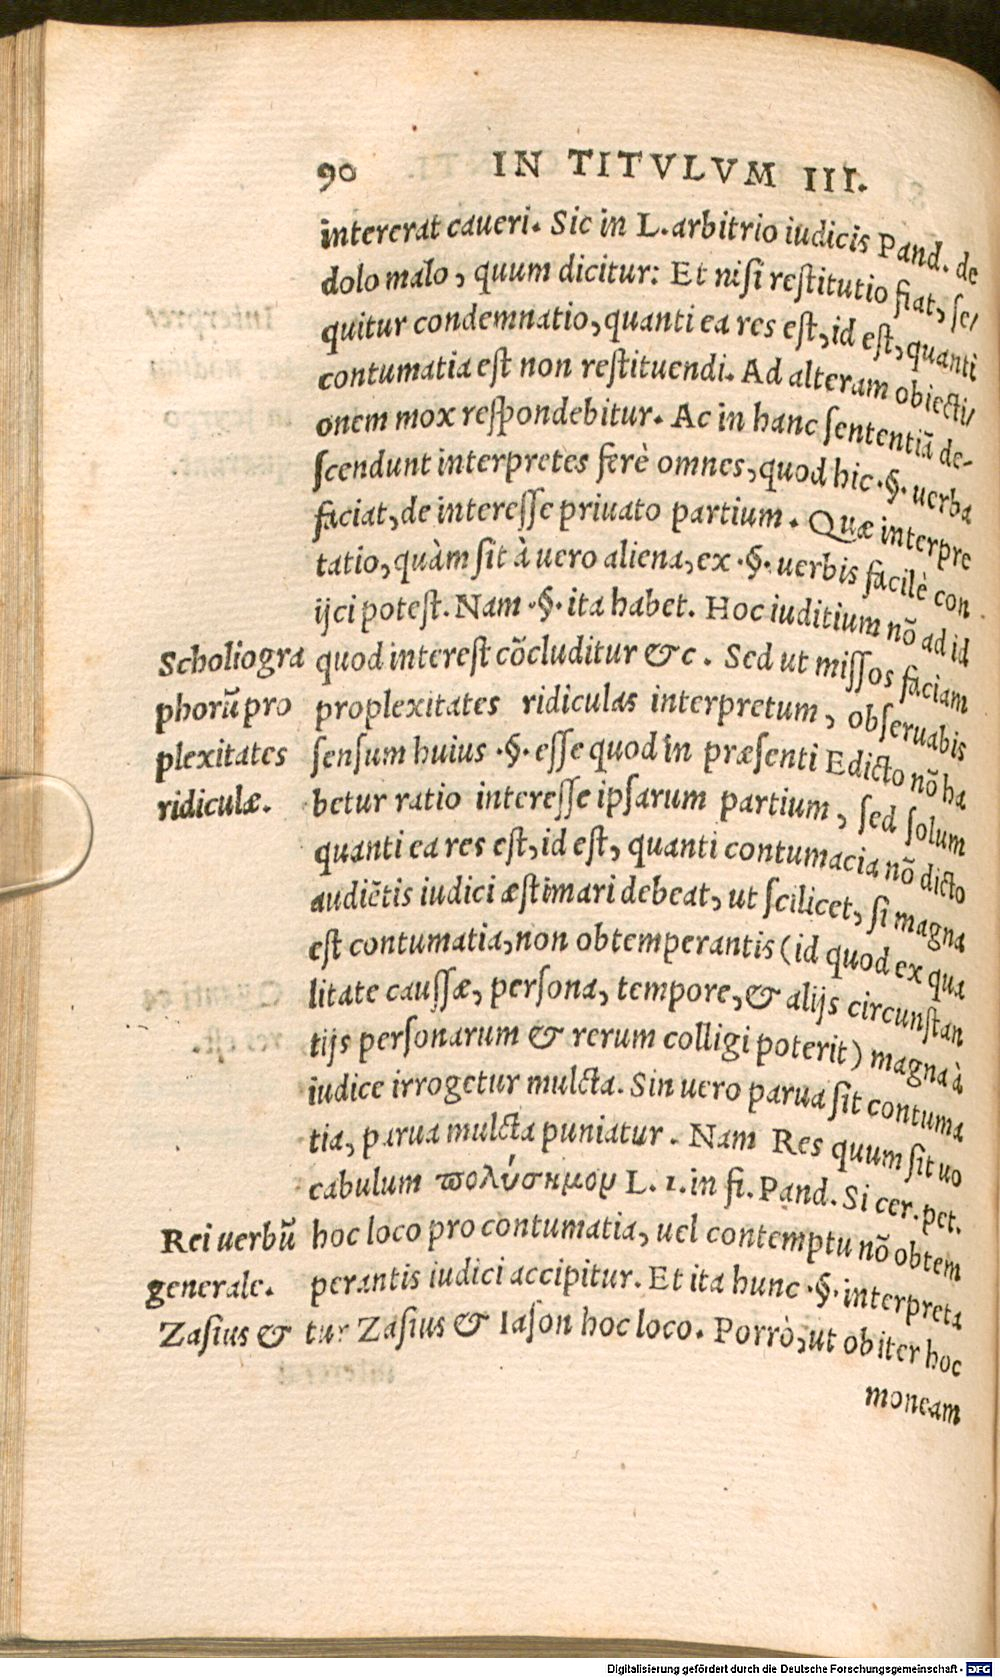 90 IN TITVLVM III.
intererat caueri. Sic in L. arbitrio iudicis Pand. de
dolo malo, quum dicitur: Et nisi restitutio fiat, se/
quitur condemnatio, quanti ea res est, id est, quanti
contumatia est non restituendi. Ad alteram obiecti/
onem mox respondebitur. Ac in hanc sententiã de-
scendunt interpretes ferè omnes, quod hic .§. uerba
faciat, de interesse priuato partium. Quæ interpre
tatio, quàm sit à uero aliena, ex .§. uerbis facilè con
ijci potest. Nam .§. ita habet. Hoc iuditium nõ ad id
quod interest cõcluditur &c. Sed ut missos faciam
proplexitates ridiculas interpretum, obseruabis
sensum huius .§. esse quod in præsenti Edicto nõ ha
betur ratio interesse ipsarum partium, sed solum
quanti ea res est, id est, quanti contumacia nõ dicto
audiẽtis iudici æstimari debeat, ut scilicet, si magna
est contumatia, non obtemperantis (id quod ex qua
litate caussæ, persona, tempore, & alijs circunstan
tijs personarum & rerum colligi poterit) magna à
iudice irrogetur mulcta. Sin uero parua sit contuma
tia, parua mulcta puniatur. Nam Res quum sit uo
cabulum πολύσημον L. 1. in fi. Pand. Si cer. pet.
hoc loco pro contumatia, uel contemptu nõ obtem
perantis iudici accipitur. Et ita hunc .§. interpreta
tur Zasius & Iason hoc loco. Porrò, ut obiter hoc
moneam
Scholiogra
phorũ pro
plexitates
ridiculæ.
Rei uerbũ
generale.
Zasius &
Digitalisierung gefördert durch die Deutsche Forschungsgemeinschaft - DFG